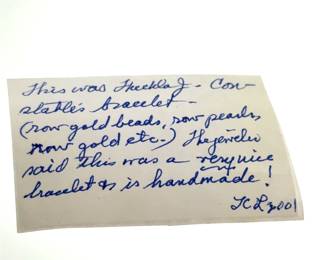 This was Theckla J. Con-
stable's bracelet -
(row gold beads, row pearls,
row gold etc.) The jeweler
said this was a very nice
bracelet & is handmade!
TCL 2001